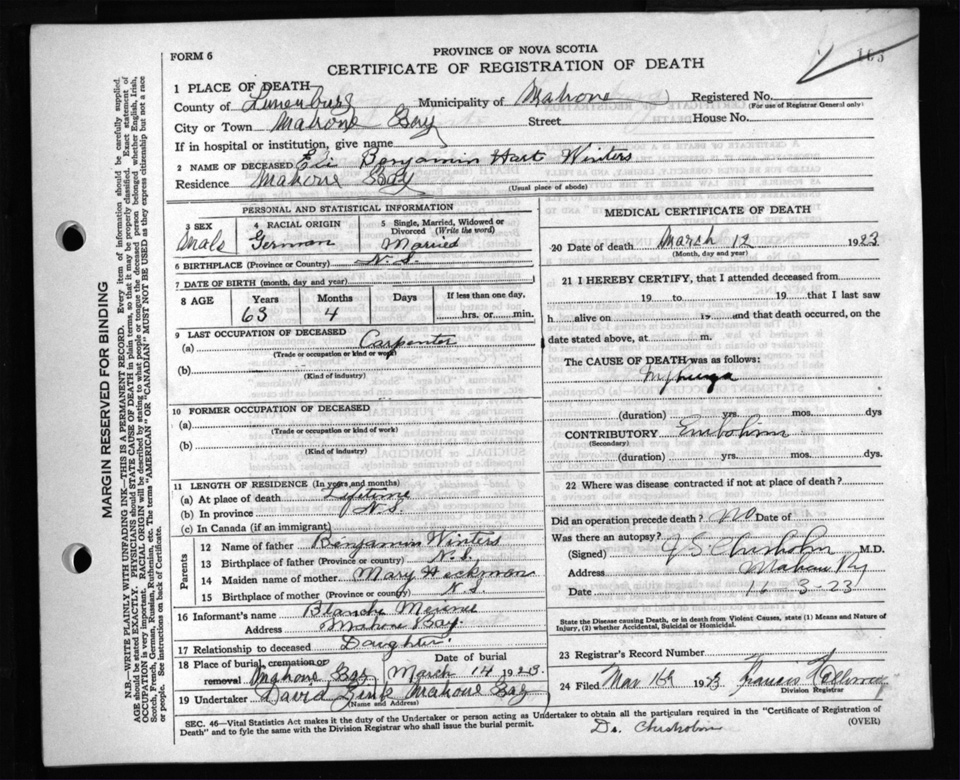 FORM 6
PROVINCE OF NOVA SCOTIA
CERTIFICATE OF REGISTRATION OF DEATH
1 PLACE OF DEATH
County of Lunenburg Municipality of Mahone Registered No.
(For use of Registrar General only)
City or Town Mahone Bay Street House No.
If in hospital or institution, give name
2 NAME OF DECEASED Eli Benjamin Hart Winters
Residence Mahone Bay
(Usual place of abode)
PERSONAL AND STATISTICAL INFORMATION
3 SEX 4 RACIAL ORIGIN 5 Single, Married, Widowed or Divorced (Write the word)
Male German Married
6 BIRTHPLACE (Province or Country) N.S.
7 DATE OF BIRTH (month, day and year)
8 AGE Years Months Days If less than one day,
63 4 hrs. or min.
9 LAST OCCUPATION OF DECEASED
(a) Carpenter
(Trade or occupation or kind of work)
(b)
(Kind of industry)
10 FORMER OCCUPATION OF DECEASED
(a)
(Trade or occupation or kind of work)
(b)
(Kind of industry)
11 LENGTH OF RESIDENCE (In years and months)
(a) At place of death Lifetime
(b) In province N.S.
(c) In Canada (if an immigrant)
Parents
12 Name of father Benjamin Winters
13 Birthplace of father (Province or country) N.S.
14 Maiden name of mother Mary Heckman
15 Birthplace of mother (Province or country) N.S.
16 Informant's name Blanche
Address Mahone Bay
17 Relationship to deceased Daughter
18 Place of burial, cremation or removal Mahone Bay Date of burial March 14 1923
19 Undertaker David Zink Mahone Bay
(Name and Address)
MEDICAL CERTIFICATE OF DEATH
20 Date of death March 12 1923
(Month, day and year)
21 I HEREBY CERTIFY, that I attended deceased from
19 to 19 that I last saw
h alive on 19 and that death occurred, on
date stated above, at m.
The CAUSE OF DEATH was as follows:
(duration) yrs. mos. dys
CONTRIBUTORY Embolism
(Secondary)
(duration) yrs. mos. dys.
22 Where was disease contracted if not at place of death?
Did an operation precede death? no Date of
Was there an autopsy?
(Signed) J S Chisholm M.D.
Address Mahone Bay
Date 16-3-23
State the Disease causing Death, or in death from Violent Causes, state (1) Means and Nature of Injury, (2) whether Accidental, Suicidal or Homicidal.
23 Registrar's Record Number
24 Filed Mar 16 1923 Francis
Division Registrar
SEC. 46—Vital Statistics Act makes it the duty of the Undertaker or person acting as Undertaker to obtain all the particulars required in the "Certificate of Registration of
Death" and to fyle the same with the Division Registrar who shall issue the burial permit.
(OVER)
Dr. Chisholm
MARGIN RESERVED FOR BINDING
N.B.—WRITE PLAINLY WITH UNFADING INK—THIS IS A PERMANENT RECORD. Every item of information should be carefully supplied.
AGE should be stated EXACTLY. PHYSICIANS should STATE CAUSE OF DEATH in plain terms, so that it may be properly classified. Exact statement of
OCCUPATION is very important. RACIAL ORIGIN will be described by stating to what people or tongue the deceased person belonged whether English, Irish,
Scotch, French, German, Russian, Ruthenian, etc. The terms "AMERICAN" OR "CANADIAN" MUST NOT BE USED as they express citizenship but not a race
or people. See instructions on back of Certificate.